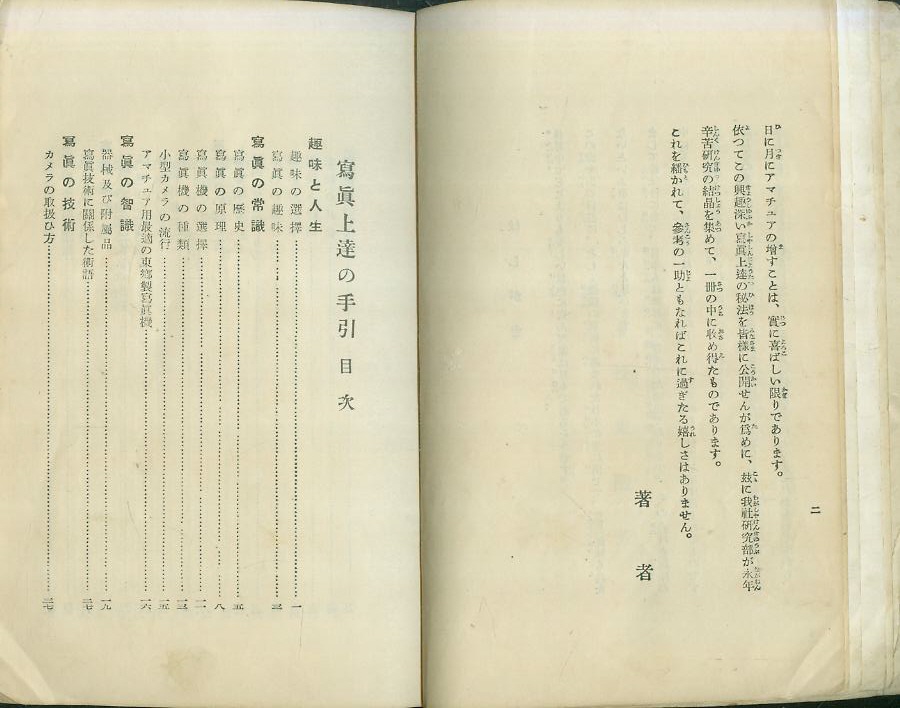 二
日に月にアマチュアの増すことは、實に喜ばしい限りであります。
依つてこの興趣深い寫眞上達の秘法を皆様に公開せんが爲めに、玆に我社研究部が永年
辛苦研究の結晶を集めて、一冊の中に收め得たものであります。
これを繙かれて、參考の一助ともなればこれに過ぎたる嬉しさはありません。
著者
寫眞上達の手引 目次
趣味と人生
趣味の選擇……一
寫眞の趣味……三
寫眞の常識
寫眞の歷史……五
寫眞の原理……八
寫眞機の選擇……一一
寫眞機の種類……一三
小型カメラの流行……一五
アマチュア用最適の東鄕製寫眞機……一六
寫眞の智識
器械及び附屬品……一九
寫眞技術に關係した術語……二七
寫眞の技術
カメラの取扱ひ方……三七